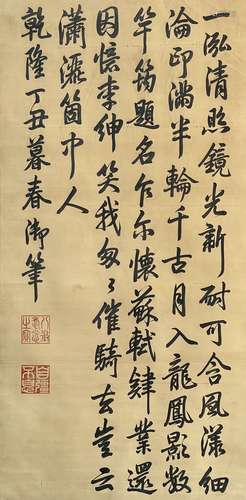 一泓清照鏡光新耐可含風漾細
淪印滿半輪千古月入龍鳳影數
竿筠題名乍尔懷蘇軾肄業還
因憶李紳笑我匆々催騎去豈云
瀟灑箇中人
乾隆丁丑暮春御筆